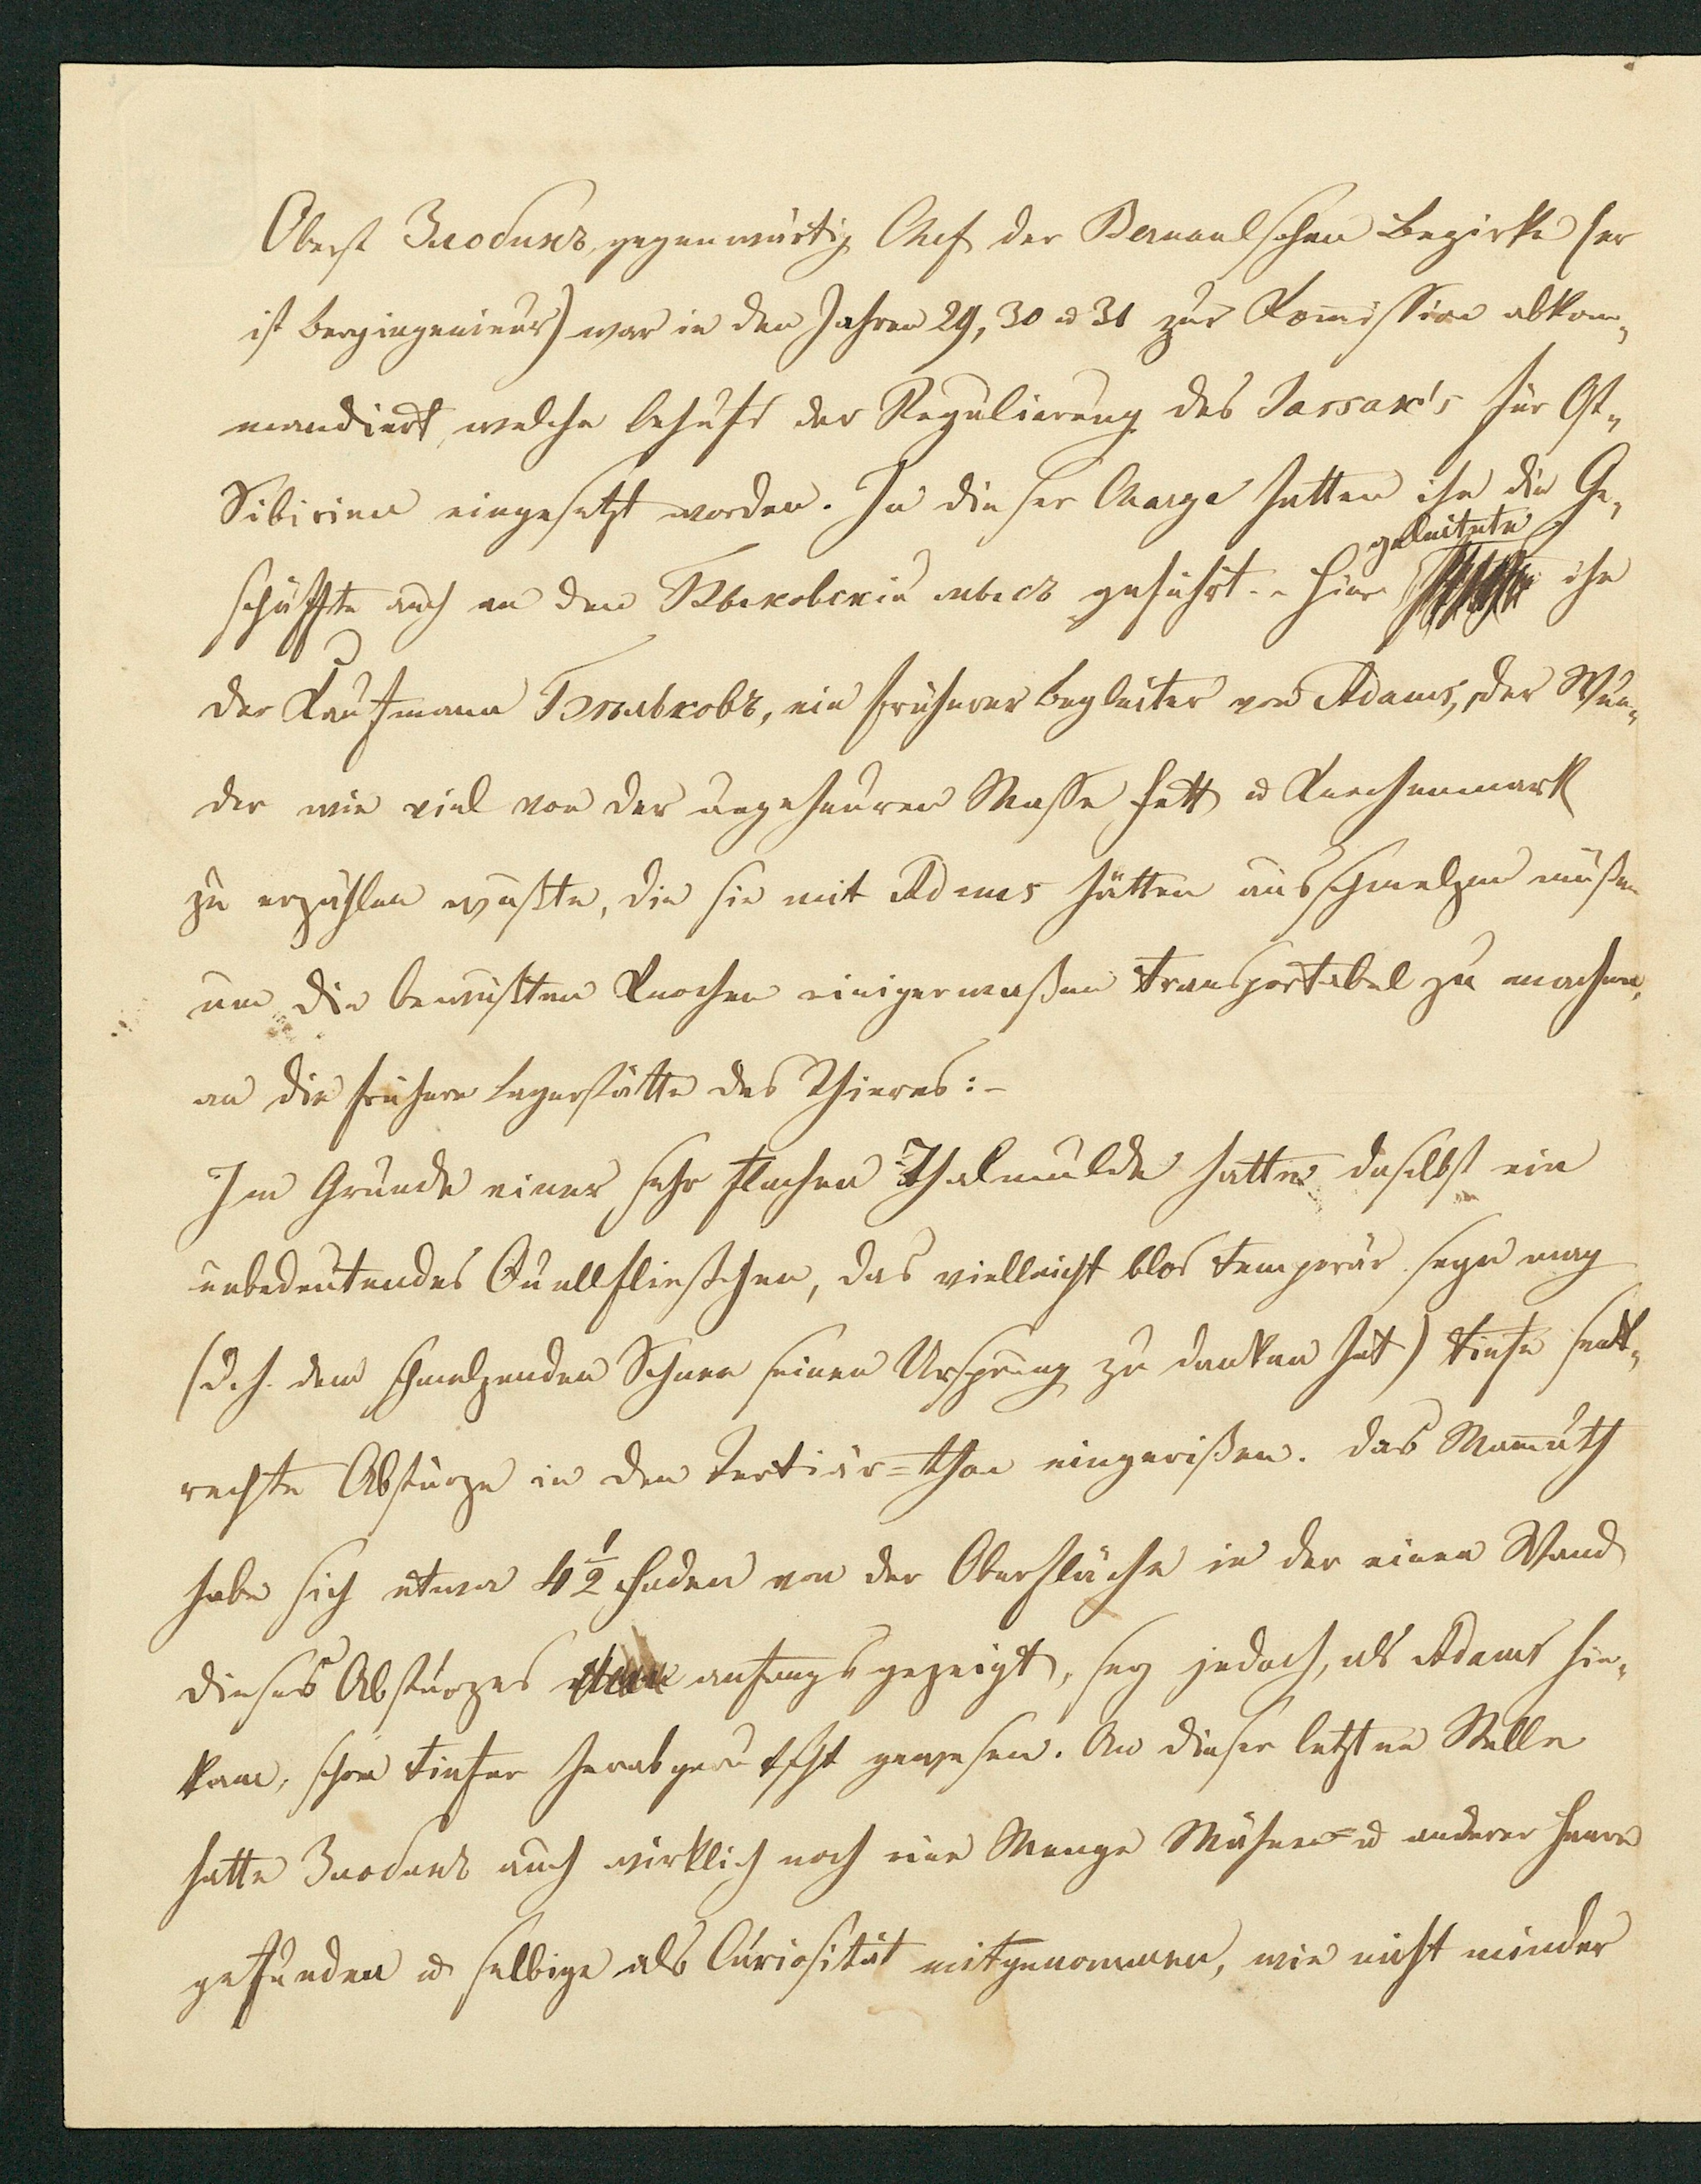 Oberst Злобинъ, gegenwärtig Chef der Barnaulschen Bezirke (er
ist Bergingenieur) war in den Jahren 29, 30 u 31 zur Kom̅ission abkom-
mandiert, welche behufs der Regulierung des Jassak's für Ost-
Sibirien eingesetzt worden. In dieser Charge hatten ihn die Ge-
schäffte auch an den Быковскiй мысъ geführt. - Hier geleitete ihn
der Kaufmann Бѣльковъ, ein früherer Begleiter von Adams, der Wun-
der wie viel von der ungeheuren Masse Fett u Knochenmark
zu erzählen wußte, die sie mit Adams hätten ausschmelzen müßen
um die bewußten Knochen einigermaßen transportabel zu machen,
an die frühere Lagerstätte des Thieres: -
Im Grunde einer sehr flachen Thalmulde hatte daselbst ein
unbedeutendes Quellfließchen, das vielleicht blos temporär seyn mag
(d. h. dem schmelzenden Schnee seinen Ursprung zu danken hat) tiefe senk-
rechte Abstürze in den Tertiär=Thon eingerißen. Das Mam̅uth
habe sich etwa 4 1/2 Faden von der Oberfläche in der einen Wand
dieses Absturzes anfangs gezeigt, sey jedoch, als Adams hin-
kam, schon tiefer herabgerutscht gewesen. An dieser letztern Stelle
hatte Злобинъ auch wirklich noch eine Menge Mähnen= u anderer Haare
gefunden u selbige als Curiosität mitgenommen, wie nicht minder